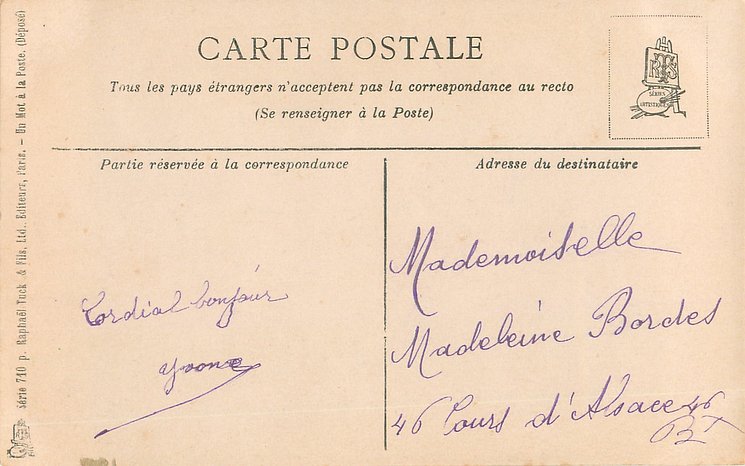 CARTE POSTALE
Tous les pays étrangers n'acceptent pas la correspondance au recto
(Se renseigner à la Poste)
RTS
SÉRIES
ARTISTIQUES
Partie réservée à la correspondance
Adresse du destinataire
Cordial bonjour
Yvonne
Mademoiselle
Madeleine Bordes
46 Cours d'Alsace 46
Bx
Série 710 p. Raphaël Tuck & Fils, Ltd., Editeurs, Paris. — Un Mot à la Poste. (Déposé)